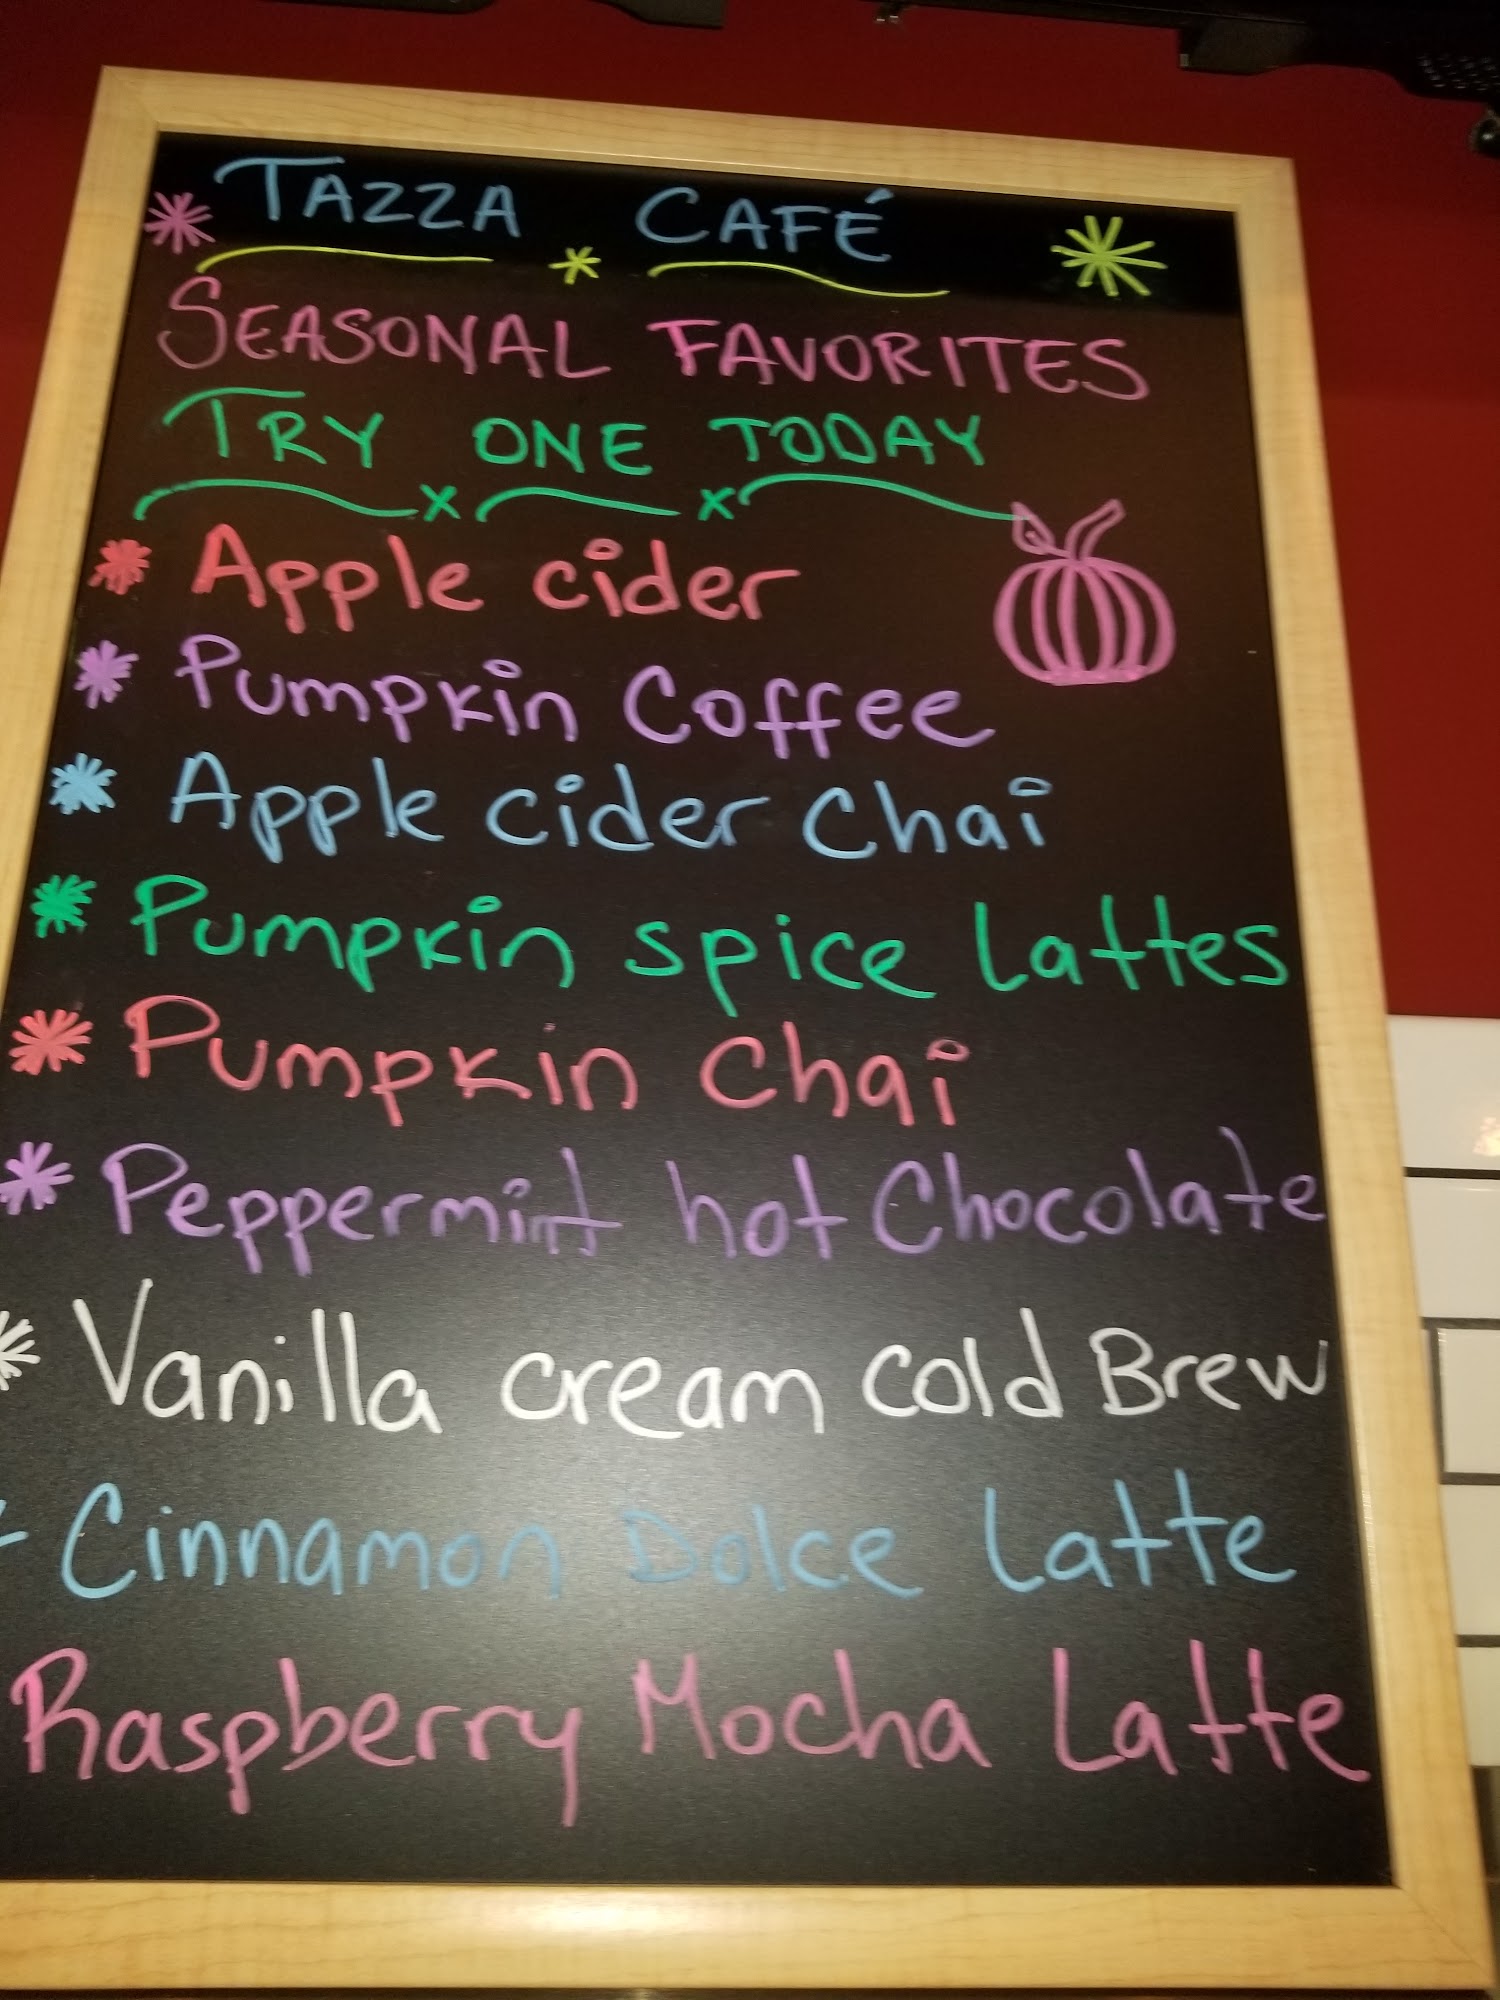 TAZZA CAFÉ
SEASONAL FAVORITES
TRY ONE TODAY
Apple cider
Pumpkin Coffee
Apple cider Chai
Pumpkin spice Lattes
Pumpkin Chai
Peppermint hot Chocolate
Vanilla cream cold Brew
Cinnamon Dolce Latte
Raspberry Mocha Latte